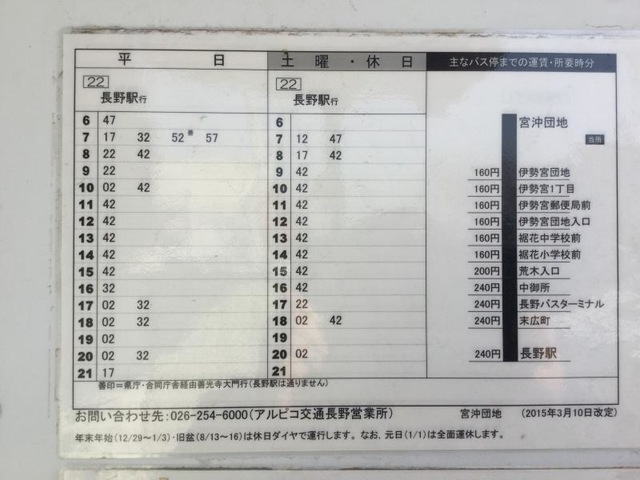 平 日 土 曜 ・ 休 日 主なバス停までの運賃・所要時分
22 22
長野駅行 長野駅行
6 47 6 宮沖団地
7 17 32 52 57 7 12 47 当所
8 22 42 8 17 42
9 22 9 42 160円 伊勢宮団地
10 02 42 10 42 160円 伊勢宮1丁目
11 42 11 42 160円 伊勢宮郵便局前
12 42 12 42 160円 伊勢宮団地入口
13 42 13 42 160円 裾花中学校前
14 42 14 42 160円 裾花小学校前
15 42 15 42 200円 荒木入口
16 32 16 42 240円 中御所
17 02 32 17 22 240円 長野バスターミナル
18 02 32 18 02 42 240円 末広町
19 02 19
20 02 32 20 02 240円 長野駅
21 17 21
善印=県庁・合同庁舎経由善光寺大門行(長野駅は通りません)
お問い合わせ先:026-254-6000(アルピコ交通長野営業所) 宮沖団地 (2015年3月10日改定)
年末年始(12/29~1/3)・旧盆(8/13~16)は休日ダイヤで運行します。なお、元日(1/1)は全面運休します。